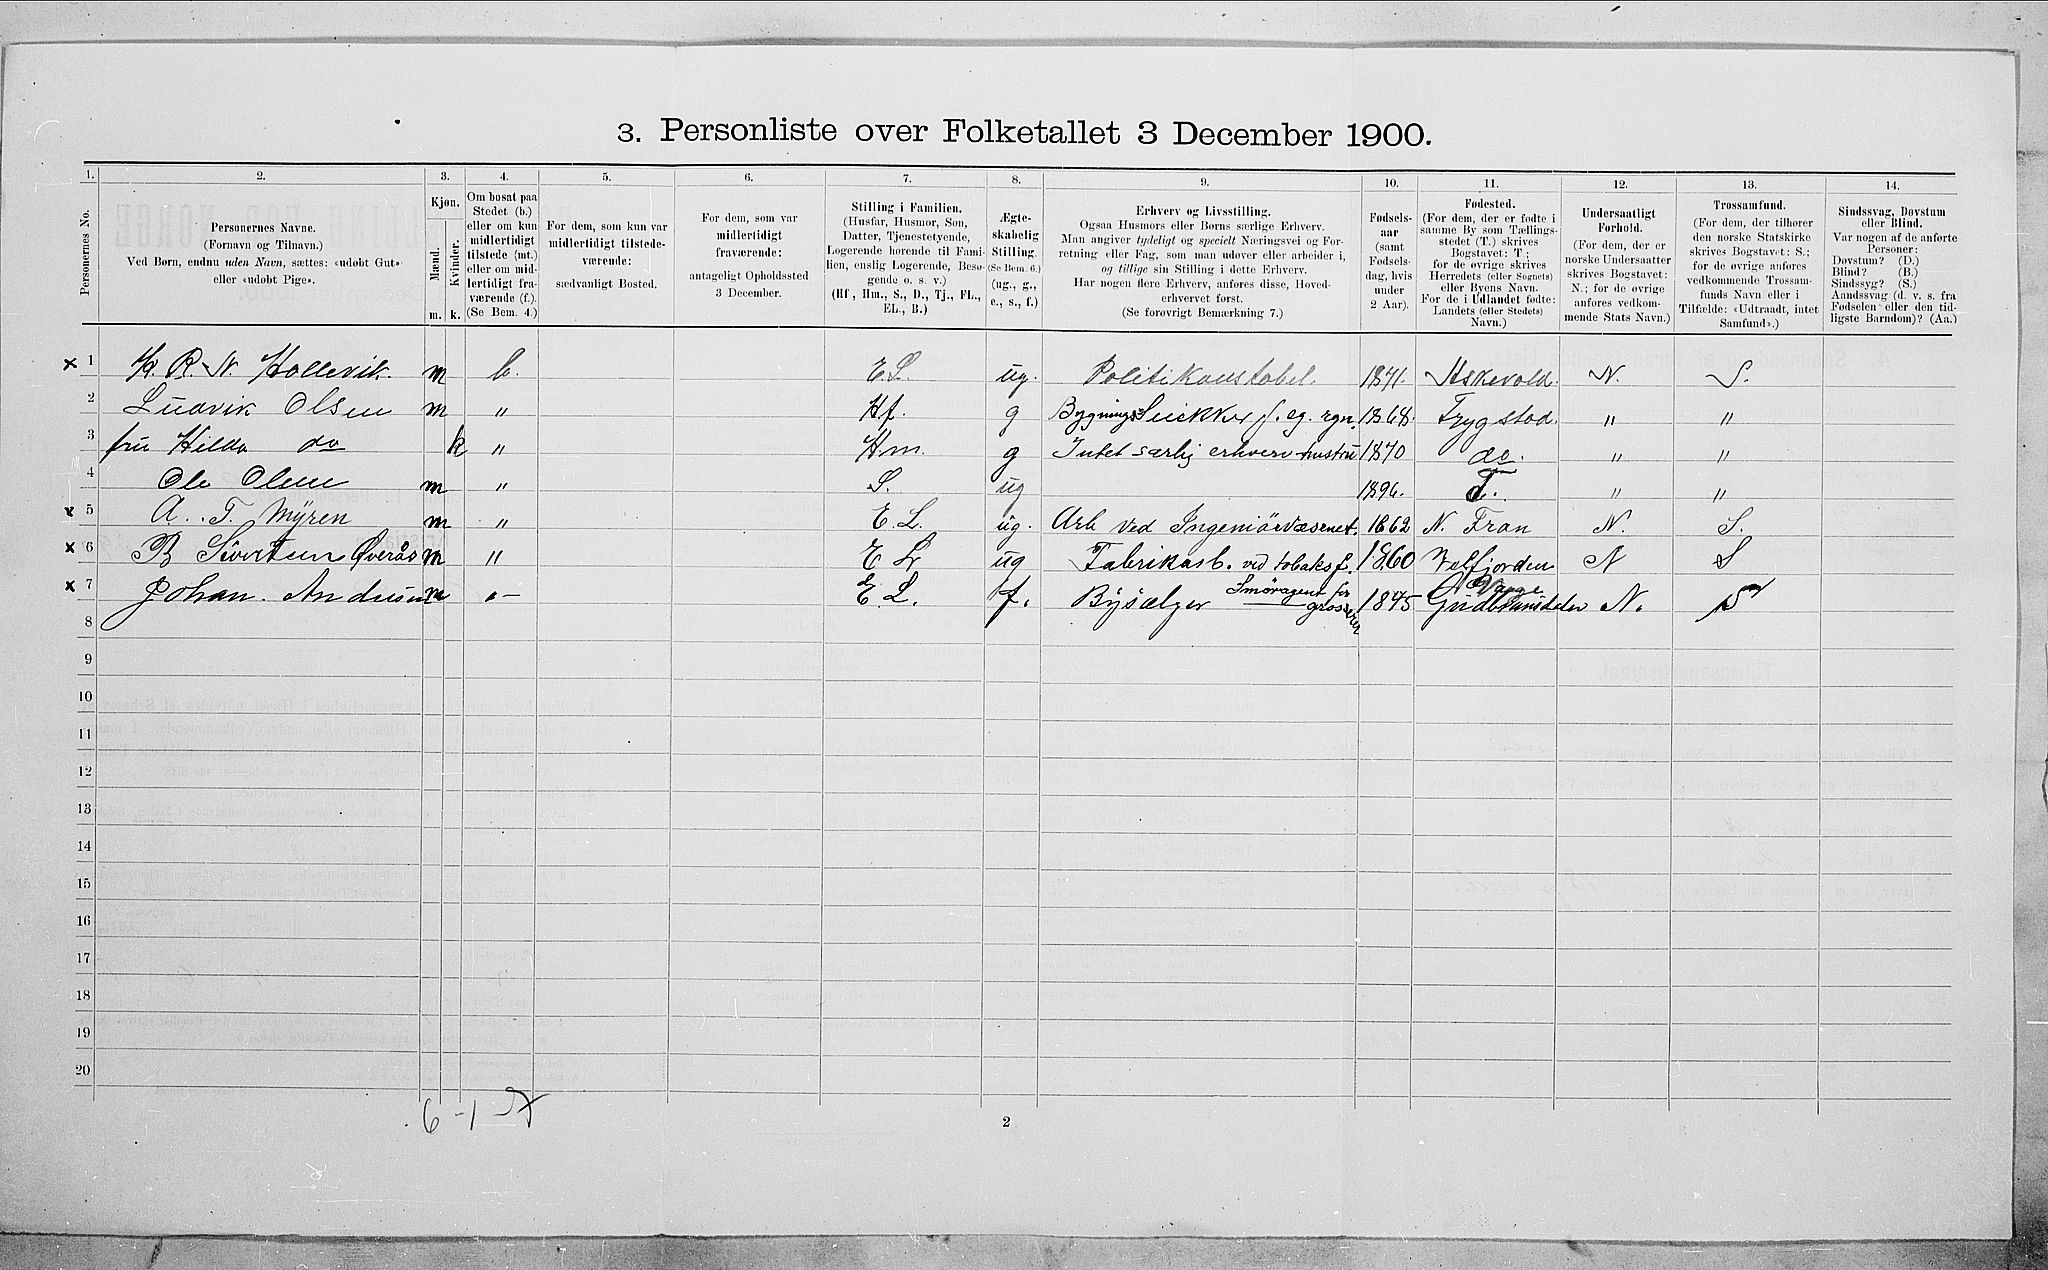 3. Personliste over Folketallet 3 December 1900.
1. 2. 3. 4. 5. 6. 7. 8. 9. 10. 11. 12. 13. 14.
Personernes No.
Personernes Navne.
(Fornavn og Tilnavn.)
Ved Børn, endnu uden Navn, sættes: «udobt Gut»
eller «udobt Pige».
Kjøn.
Mænd.
Kvinder.
m. k.
Om bosat paa
Stedet (b.)
eller om kun
midlertidigt
tilstede (mt.)
eller om mid-
lertidigt fra-
værende (f.).
(Se Bem. 4.)
For dem, som kun var
midlertidigt tilstede-
værende:
sædvanligt Bosted.
For dem, som var
midlertidigt
fraværende:
antageligt Opholdssted
3 December.
Stilling i Familien.
(Husfar, Husmor, Søn,
Datter, Tjenestetyende,
Logerende hørende til Fami-
lien, enslig Logerende, Besø-
gende o. s. v.)
(Hf, Hm., S., D., Tj., FL.,
EL., B.)
Ægte-
skabelig
Stilling.
(Se Bem. 6.)
(ug., g.,
e., s., f.)
Erhverv og Livsstilling.
Ogsaa Husmors eller Børns særlige Erhverv.
Man angiver tydeligt og specielt Næringsvei og For-
retning eller Fag, som man udover eller arbeider i,
og tillige sin Stilling i dette Erhverv.
Har nogen flere Erhverv, anføres disse, Hoved-
erhvervet først.
(Se forøvrigt Bemærkning 7.)
Fødsels-
aar
(samt
Fødsels-
dag, hvis
under
2 Aar).
Fødested.
(For dem, der er fødte i
samme By som Tællings-
stedet (T.) skrives
Bogstavet: T;
for de øvrige skrives
Herredets (eller Sognets)
eller Byens Navn.
For de i Udlandet fødte:
Landets (eller Stedets)
Navn.)
Undersaatligt
Forhold.
(For dem, der er
norske Undersaatter
skrives Bogstavet:
N.; for de øvrige
anføres vedkom-
mende Stats Navn.)
Trossamfund.
(For dem, der tilhører
den norske Statskirke
skrives Bogstavet: S.;
for de øvrige anføres
vedkommende Trossam-
funds Navn eller i
Tilfælde: «Udtraadt, intet
Samfund».)
Sindssvag, Døvstum
eller Blind.
Var nogen af de anførte
Personer:
Døvstum? (D.)
Blind? (B.)
Sindssyg? (S.)
Aandssvag (d. v. s. fra
Fødselen eller den tid-
ligste Barndom)? (Aa.)
x 1 K. R. N. Hollevik. m b. E.L. ug. Politikonstabel. 1871. Askevold. N. S.
2 Ludvik Olsen m " Hf. g Bygnings Snekker f. eg. rgn. 1868. Trygstad. " "
3 fru Hilda do k " Hm. g Intet særlig erhverv hustru 1870 do. " "
4 Ole Olsen m " S. ug 1896. T. " "
x 5 A. T. Myren m " E. L. ug. Arb ved Ingeniörvæsenet. 1862 N. Fron N. S.
x 6 B Sivertsen Øverås m " E L ug Fabrikarb. ved tobaksf. 1860 Velfjorden N S
x 7 Johan. Andersen m "- E. L. f. Bysælger Smöragent for grosserer 1845 Gudbransdalen Vaage N. S
8
9
10
11
12
13
14
15
16
17
18
19
20
6 - 1
2